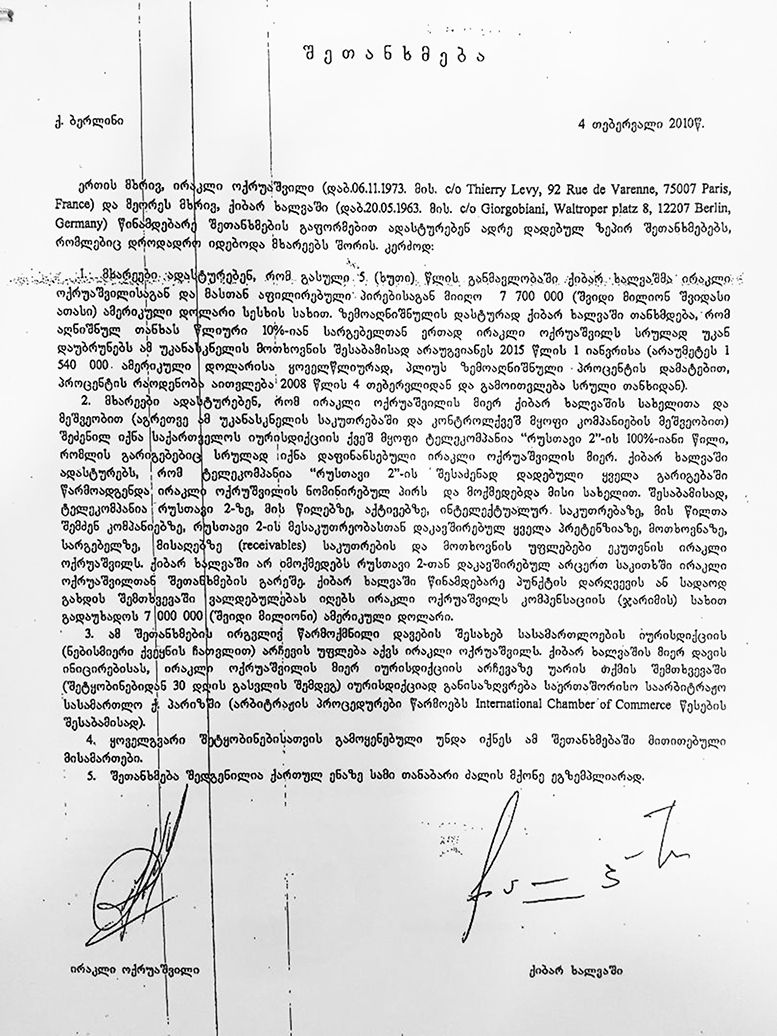 შეთანხმება
ქ. ბერლინი
4 თებერვალი 2010წ.
ერთის მხრივ, ირაკლი ოქრუაშვილი (დაბ.06.11.1973. მის. c/o Thierry Levy, 92 Rue de Varenne, 75007 Paris,
France) და მეორეს მხრივ, ქიბარ ხალვაში (დაბ.20.05.1963. მის. c/o Giorgobiani, Waltroper platz 8, 12207 Berlin,
Germany) წინამდებარე შეთანხმების გაფორმებით ადასტურებენ ადრე დადებულ ზეპირ შეთანხმებებს,
რომლებიც დროდადრო იდებოდა მხარეებს შორის. კერძოდ:
1. მხარეები ადასტურებენ, რომ გასული 5 (ხუთი) წლის განმავლობაში ქიბარ ხალვაშმა ირაკლი
ოქრუაშვილისაგან და მასთან აფილირებული პირებისაგან მიიღო 7 700 000 (შვიდი მილიონ შვიდასი
ათასი) ამერიკული დოლარი სესხის სახით. ზემოაღნიშნულის დასტურად ქიბარ ხალვაში თანხმდება, რომ
აღნიშნულ თანხას წლიური 10%-იან სარგებელთან ერთად ირაკლი ოქრუაშვილს სრულად უკან
დაუბრუნებს ამ უკანასკნელის მოთხოვნის შესაბამისად არაუგვიანეს 2015 წლის 1 იანვრისა (არაუმეტეს 1
540 000 ამერიკული დოლარისა ყოველწლიურად, პლიუს ზემოაღნიშნული პროცენტის დამატებით,
პროცენტის რაოდენობა აითვლება 2008 წლის 4 თებერვლიდან და გამოითვლება სრული თანხიდან).
2. მხარეები ადასტურებენ, რომ ირაკლი ოქრუაშვილის მიერ ქიბარ ხალვაშის სახელითა და
მეშვეობით (აგრეთვე ამ უკანასკნელის საკუთრებაში და კონტროლქვეშ მყოფი კომპანიების მეშვეობით)
შეძენილ იქნა საქართველოს იურისდიქციის ქვეშ მყოფი ტელეკომპანია “რუსთავი 2”-ის 100%-იანი წილი,
რომლის გარიგებებიც სრულად იქნა დაფინანსებული ირაკლი ოქრუაშვილის მიერ. ქიბარ ხალვაში
ადასტურებს, რომ ტელეკომპანია “რუსთავი 2”-ის შესაძენად დადებული ყველა გარიგებაში
წარმოადგენდა ირაკლი ოქრუშვილის ნომინირებულ პირს და მოქმედებდა მისი სახელით. შესაბამისად,
ტელეკომპანია რუსთავი 2-ზე, მის წილებზე, აქტივებზე, ინტელექტუალურ საკუთრებაზე, მის წილთა
შემძენ კომპანიებზე, რუსთავი 2-ის მესაკუთრეობასთან დაკავშირებულ ყველა პრეტენზიაზე, მოთხოვნაზე,
სარგებელზე, მისაღებზე (receivables) საკუთრების და მოთხოვნის უფლებები ეკუთვნის ირაკლი
ოქრუაშვილს. ქიბარ ხალვაში არ იმოქმედებს რუსთავი 2-თან დაკავშირებულ არცერთ საკითხში ირაკლი
ოქრუაშვილთან შეთანხმების გარეშე. ქიბარ ხალვაში წინამდებარე პუნქტის დარღვევის ან სადაოდ
გახდის შემთხვევაში ვალდებულებას იღებს ირაკლი ოქრუაშვილს კომპენსაციის (ჯარიმის) სახით
გადაუხადოს 7 000 000 (შვიდი მილიონი) ამერიკული დოლარი.
3. ამ შეთანხმების ირგვლივ წარმოქმნილი დავების შესახებ სასამართლოების იურისდიქციის
(ნებისმიერი ქვეყნის ჩათვლით) არჩევის უფლება აქვს ირაკლი ოქრუაშვილს. ქიბარ ხალვაშის მიერ დავის
ინიცირებისას, ირაკლი ოქრუაშვილის მიერ იურისდიქციის არჩევაზე უარის თქმის შემთხვევაში
(შეტყობინებიდან 30 დღის გასვლის შემდეგ) იურისდიქციად განისაზღვრება საერთაშორისო საარბიტრაჟო
სასამართლო ქ. პარიზში (არბიტრაჟის პროცედურები წარმოებს International Chamber of Commerce წესების
შესაბამისად).
4. ყოველგვარი შეტყობინებისათვის გამოყენებული უნდა იქნეს ამ შეთანხმებაში მითითებული
მისამართები.
5. შეთანხმება შედგენილია ქართულ ენაზე სამი თანაბარი ძალის მქონე ეგზემპლიარად.
ირაკლი ოქრუაშვილი
ქიბარ ხალვაში